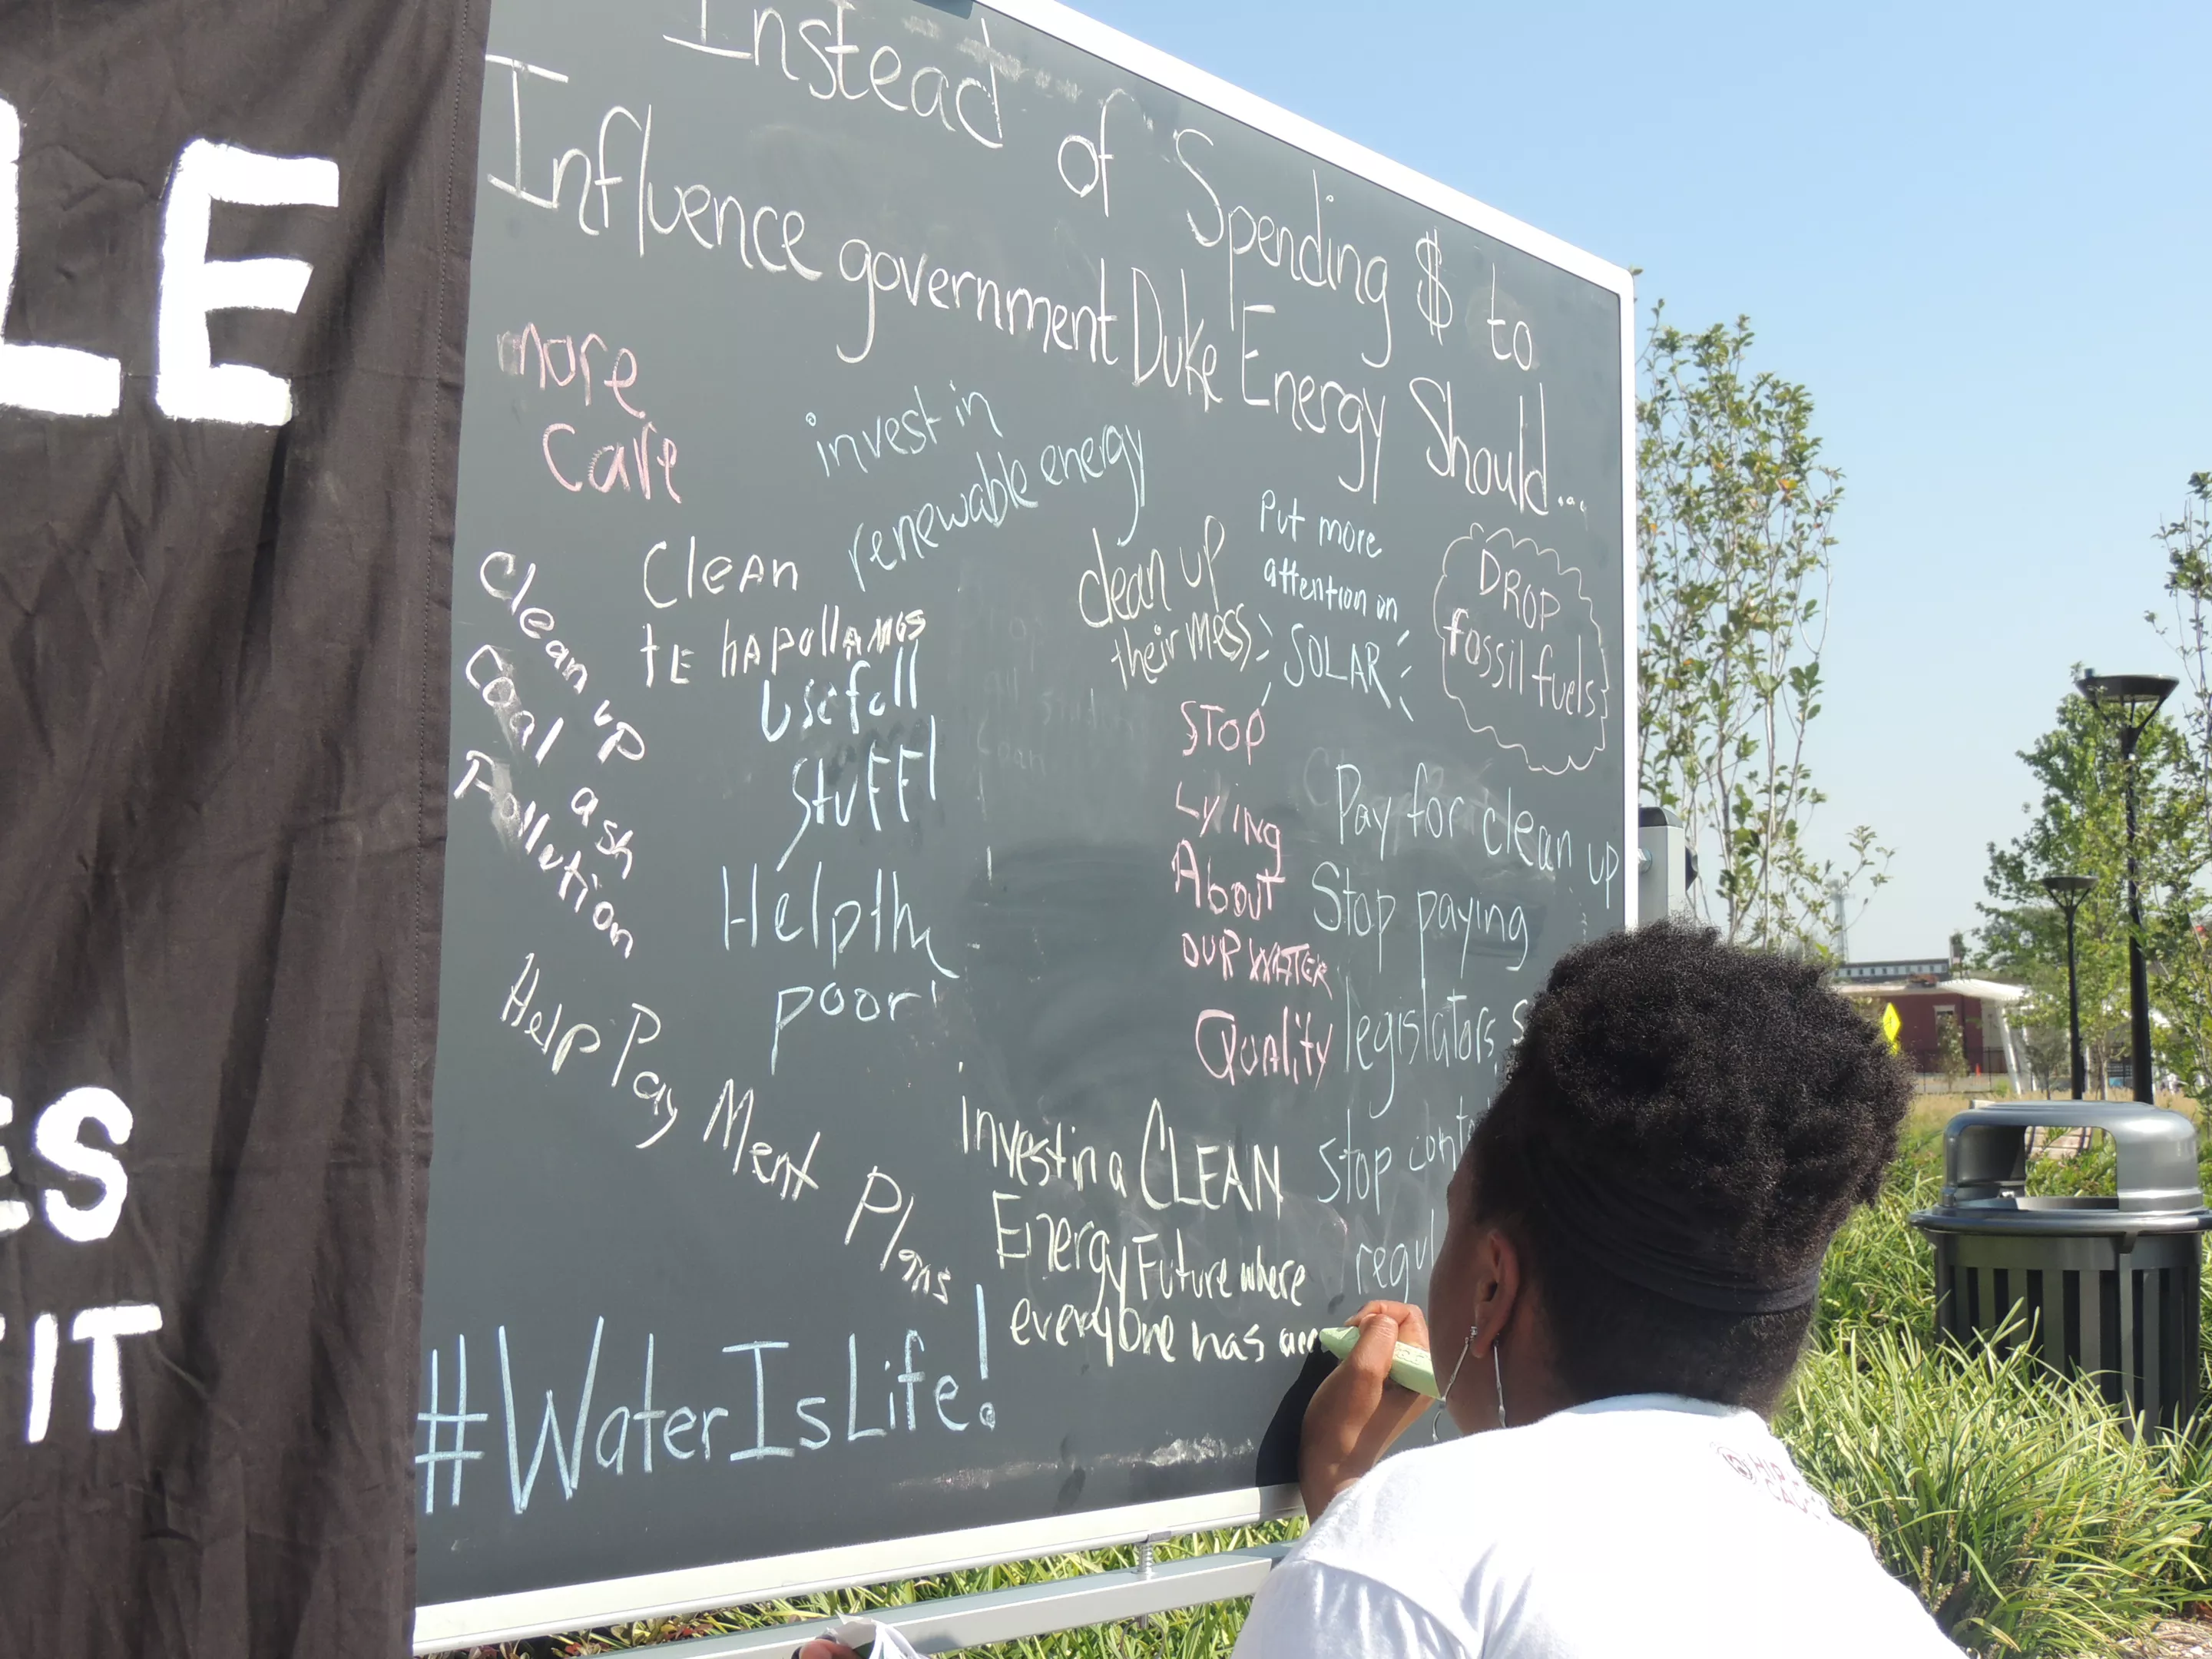 LE
ES
IT
Instead of Spending $ to
Influence government Duke Energy Should...
more
Care
invest in
renewable energy
Clean up
Coal ash
Pollution
Clean
tE hApollAMos
Usefull
Stuff!
Help the
poor!
Help Pay Ment Plans
#WaterIsLife!
clean up
their mess
Put more
attention on
SOLAR
DROP
fossil fuels
STOP
Lying
About
OUR WATER
Quality
Pay for clean up
Stop paying
legislators,
Stop
invest in a CLEAN
Energy Future where
everyone has